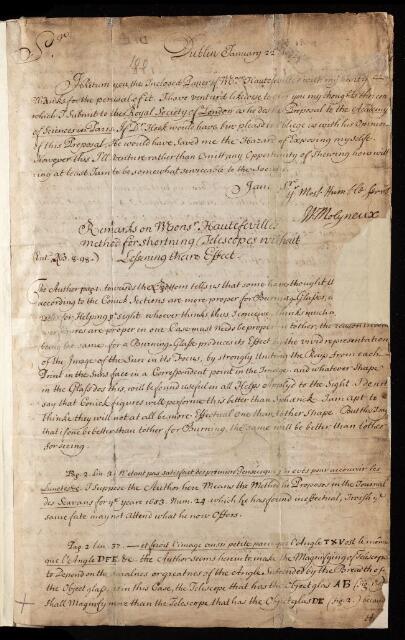 Dublin January 22
I Return you the Inclosed Paper of Monsr Hautefeuille with my hearty
thanks for the perusal of it. I have ventur'd likewise to give you my thoughts thereon
which I Submit to the Royal Society of London as he do's the Proposal to the Academy
of Sciences in Paris. If Dr. Hook would have been pleas'd to Oblige us with his Opinion
of this Proposal, He would have Saved me the Hazard of Exposing my self.
However this I'll venture rather than Omitt any Oppertunity of Shewing how will
ing at least I am to be somewhat Serviceable to the Society.
I am Sr.
yr Most Humble Servt
W Molyneux
Remarks on Monsr. Hautefeuilles
method for shortning Telescopes without
Lessening their Effect.
The Author pag. towards the Bottom tells us that some have thought
according to the Conick Sections are more proper for Burning-Glasses,
for Helping ye sight. whoever thinks thus
figures are proper in one Case must needs be proper in tother, the reason
being the same. for a Burning-Glass produces its Effect by the vivid representation
of the Image of the Sun in its Focus, by strongly Uniting the Rays from each
Point in the Suns face in a Correspondent point in the Image. and whatever Shape
in the Glass do's this, will be found usefull in all Helps apply'd to the Sight. I do not
say that Conick figures will perform this better than Spherick. I am apt to
thinke they will not at all be more Effectual one than tother Shape. But this I say
that if one be better than tother for Burning, the same will be better than tother
for seeing.
Pag. 2. Lin. 3. N'étant pas satisfait des premiers pour accourcir les
Lunettes &c. I suppose the Author here Means the Method he Proposes in the Journal
des Scavans for ye year 1683. Num. 24. which he has found ineffectual, I wish ye
same fate may not Attend what he now Offers.
Pag 2 Lin. 37. — et si l'image aussi petite que l'Angle TXV est le mème
que l'Angle DFE &c. the Author seems herein to make the Magnifying of Telescopes
to Depend on the Smalness or greatness of the Angle Subtended by the Breadth of
the Object glass. for in this Case, the Telescope that has the Object glas AB (fig. 1.)
shall Magnify more than the Telescope that has the Object glas DE (fig. 2.) because